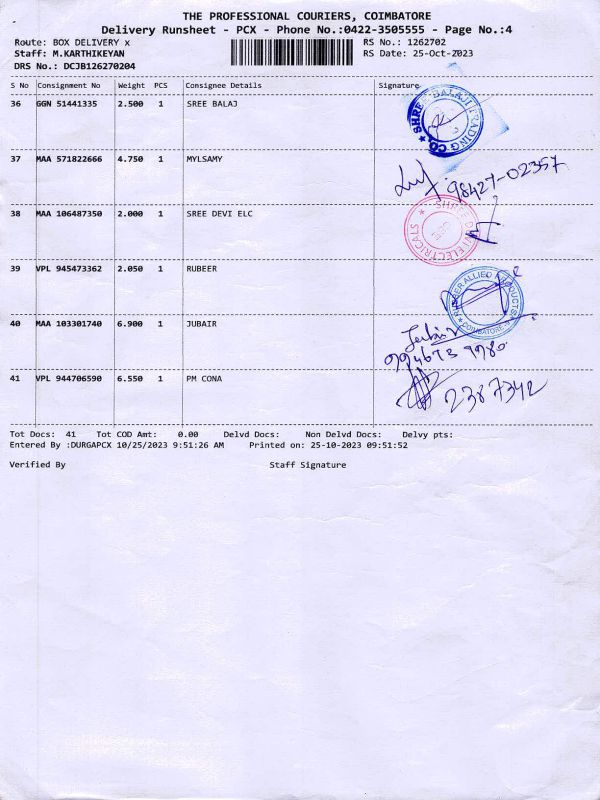 THE PROFESSIONAL COURIERS, COIMBATORE
Delivery Runsheet - PCX - Phone No.:0422-3505555 - Page No.:4
Route: BOX DELIVERY x RS No.: 1262702
Staff: M.KARTHIKEYAN RS Date: 25-Oct-2023
DRS No.: DCJB126270204
S No Consignment No Weight PCS Consignee Details Signature
36 GGN 51441335 2.500 1 SREE BALAJ
SHREE BALAJI TRADING CO.
37 MAA 571822666 4.750 1 MYLSAMY
98427-02357
38 MAA 106487350 2.000 1 SREE DEVI ELC
SHREE DEVI ELECTRICALS
39 VPL 945473362 2.050 1 RUBEER
RUBBER ALLIED PRODUCTS
COIMBATORE
40 MAA 103301740 6.900 1 JUBAIR
Jubair
994673 1980
41 VPL 944706590 6.550 1 PM CONA
2387342
Tot Docs: 41 Tot COD Amt: 0.00 Delvd Docs: Non Delvd Docs: Delvy pts:
Entered By :DURGAPCX 10/25/2023 9:51:26 AM Printed on: 25-10-2023 09:51:52
Verified By Staff Signature